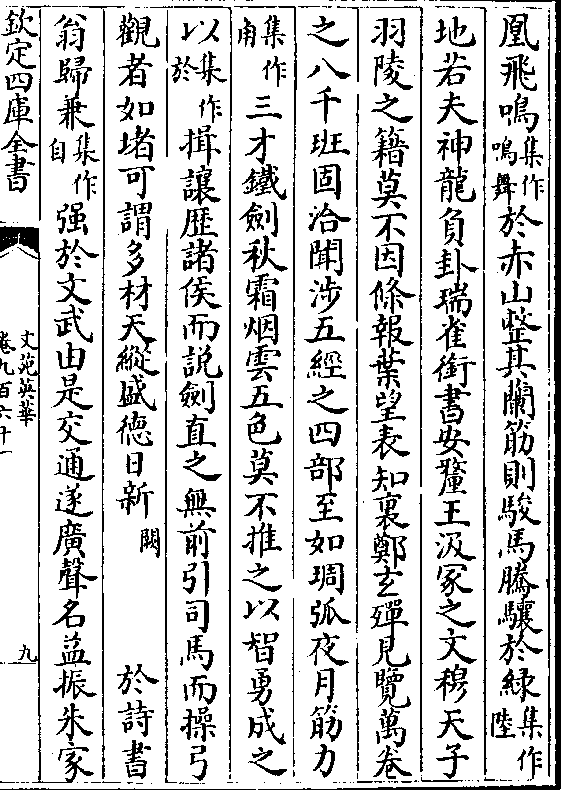 凰飛鳴集作鳴舞於赤山整其蘭筋則駿馬騰驤於綠集作陸
地若夫神龍負卦瑞雀銜書安釐王汲冡之文穆天子
羽陵之籍莫不因條報葉望表知裏鄭玄殫見覽萬卷
之八千班固洽聞涉五經之四部至如琱弧夜月筋力
集作甬三才鐵劍秋霜烟雲五色莫不推之以智勇成之
以集作於揖讓歴諸侯而説劍直之無前引司馬而操弓
觀者如堵可謂多材天縱盛徳日新闕於詩書
翁歸兼集作自强於文武由是交通遂廣聲名益振朱家
欽定四庫全書
文苑英華
卷九百六十一
九